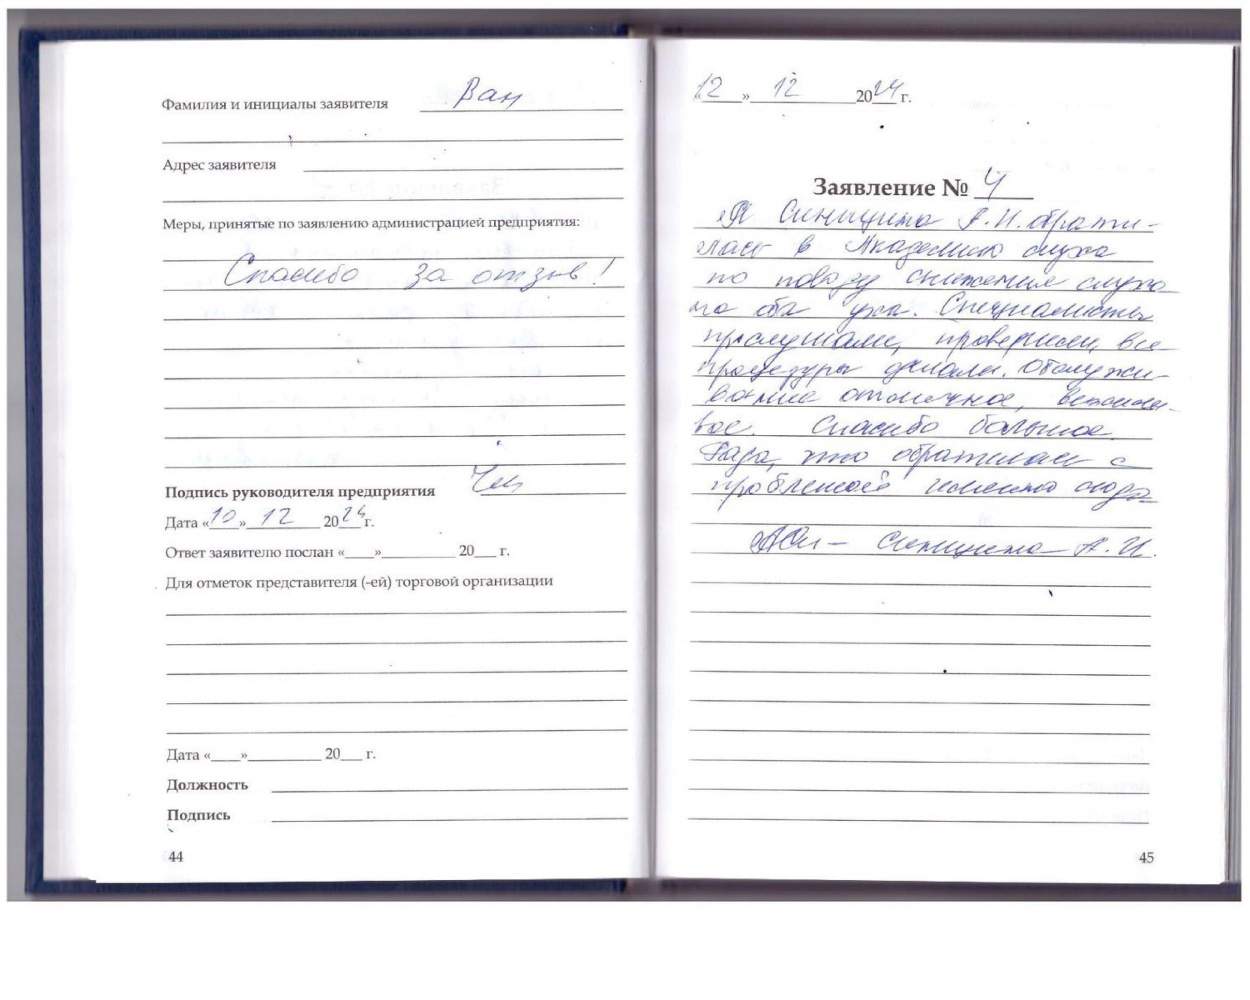 Фамилия и инициалы заявителя Ван
Адрес заявителя
Меры, принятые по заявлению администрацией предприятия:
Спасибо за отзыв!
Подпись руководителя предприятия
Дата «10» 12 2024 г.
Ответ заявителю послан «____»__________ 20___ г.
Для отметок представителя (-ей) торговой организации
Дата «____»__________ 20___ г.
Должность
Подпись
44
12 » 12 2024 г.
Заявление № 4
Я Синицина А.И. обрати-
лась в Академию слуха
по поводу снижения слуха
на оба уха. Специалисты
прослушали, проверили, все
процедуры делали. Обслужи-
вание отличное, вежли-
вое. Спасибо большое.
Рада, что обратилась с
проблемой именно сюда
Синицина А.И.
45